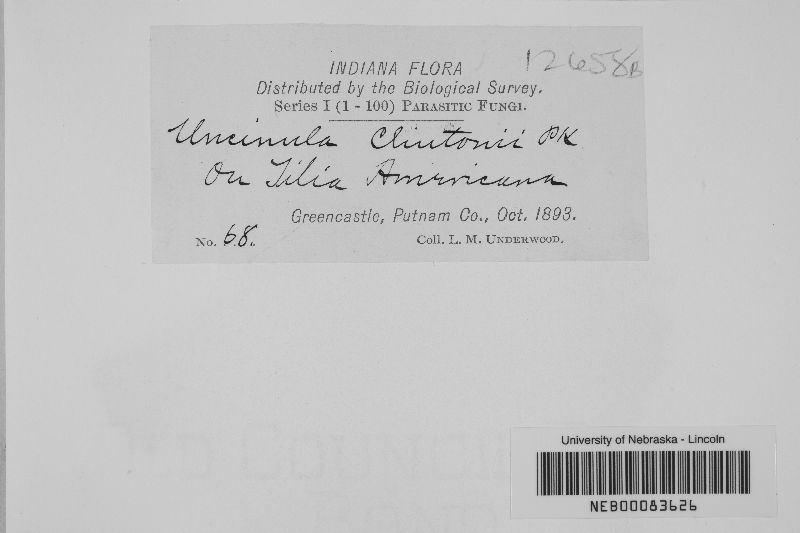 12658B
INDIANA FLORA
Distributed by the Biological Survey.
Series I (1 - 100) PARASITIC FUNGI.
Uncinula Clintonii PK
On Tilia Americana
Greencastle, Putnam Co., Oct. 1893.
No. 68. Coll. L. M. UNDERWOOD.
University of Nebraska - Lincoln
NEB00083626